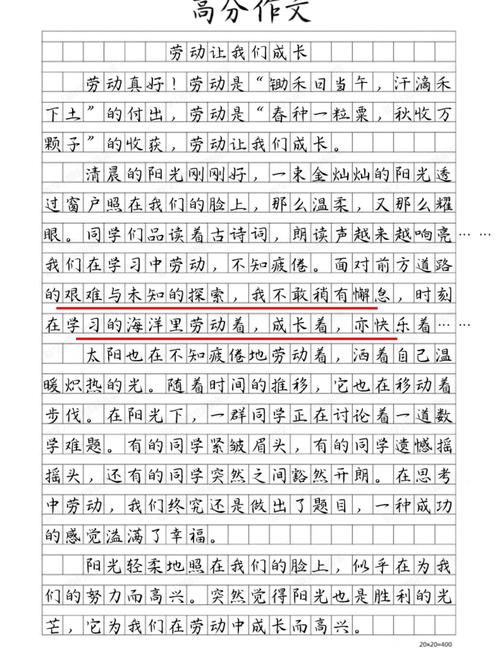 高分作文
劳动让我们成长
劳动真好！劳动是“锄禾日当午，汗滴禾
下土”的付出，劳动是“春种一粒粟，秋收万
颗子”的收获，劳动让我们成长。
清晨的阳光刚刚好，一束金灿灿的阳光透
过窗户照在我们的脸上，那么温柔，又那么耀
眼。同学们品读着古诗词，朗读声越来越响亮……
我们在学习中劳动，不知疲倦。面对前方道路
的艰难与未知的探索，我不敢稍有懈怠，时刻
在学习的海洋里劳动着，成长着，亦快乐着……
太阳也在不知疲倦地劳动着，洒着自己温
暖炽热的光。随着时间的推移，它也在移动着
步伐。在阳光下，一群同学正在讨论着一道数
学难题。有的同学紧皱眉头，有的同学遗憾摇
摇头，还有的同学突然之间豁然开朗。在思考
中劳动，我们终究还是做出了题目，一种成功
的感觉溢满了幸福。
阳光轻柔地照在我们的脸上，似乎在为我
们的努力而高兴。突然觉得阳光也是胜利的光
芒，它为我们在劳动中成长而高兴。
20×20=400